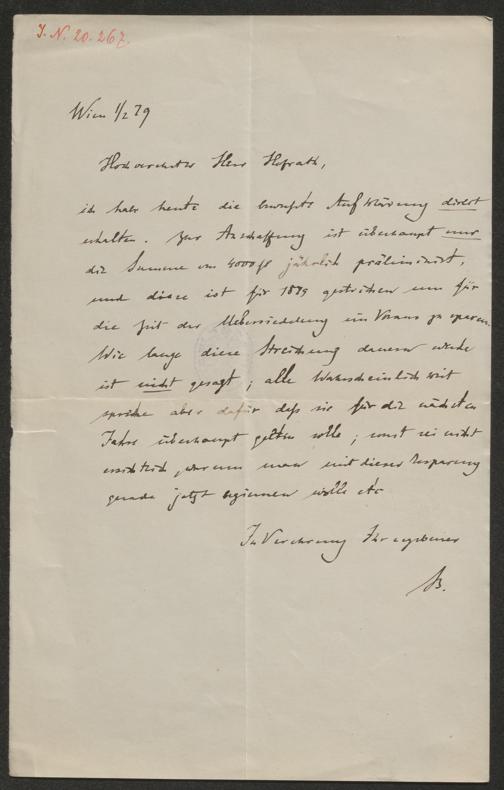 I. N. 20.267.
Wien 1/2 79
Hochverehrter Herr Hofrath,
ich habe heute die bewußte Aufklärung direct
erhalten. Zur Anschaffung ist überhaupt nur
die Summe von 4000 fl jährlich präliminirt,
und diese ist für 1879 gestrichen um für
die Zeit der Uebersiedelung im Voraus zu sparen.
Wie lange diese Streichung dauern werde
ist nicht gesagt; alle Wahrscheinlichkeit
spreche aber dafür daß sie für die nächsten
Jahre überhaupt gelten solle; sonst sei nicht
ersichtlich, warum man mit dieser Ersparung
gerade jetzt beginnen wolle etc
In Verehrung Ihr ergebener
B.